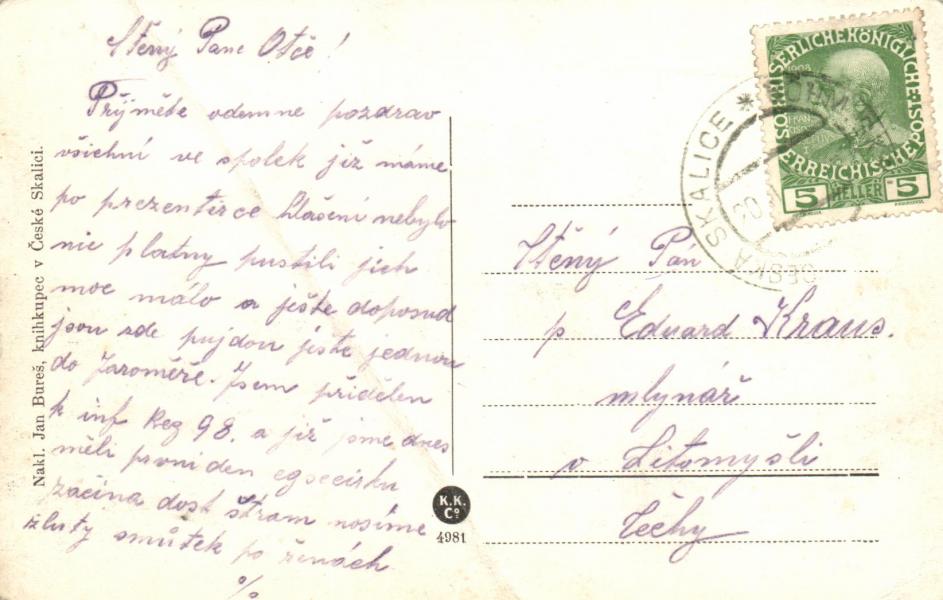 Ctěný Pane Otče!
Přijměte odemne pozdrav
všichni ve spolek již máme
po prezentirce hlášení nebylo
nic platny pustili jich
moc málo a ještě doposud
jsou zde pujdou jště jednou
do Jaroměře. Jsem přidělen
k inf Reg 98. a již jsme dnes
měli prvni den egsecirku
začina dost štram nosíme
žluty smůtek po ženách
%
Nakl. Jan Bureš, knihkupec v České Skalici.
K.K.
Cº
4981
KAISERLICHE KÖNIGLICHE POST
1908
ÖSTERREICHISCHE
5 HELLER 5
ČESKÁ SKALICE
20
Ctěný Pán
p Eduard Kraus.
mlynář
v Litomyšli
Čechy